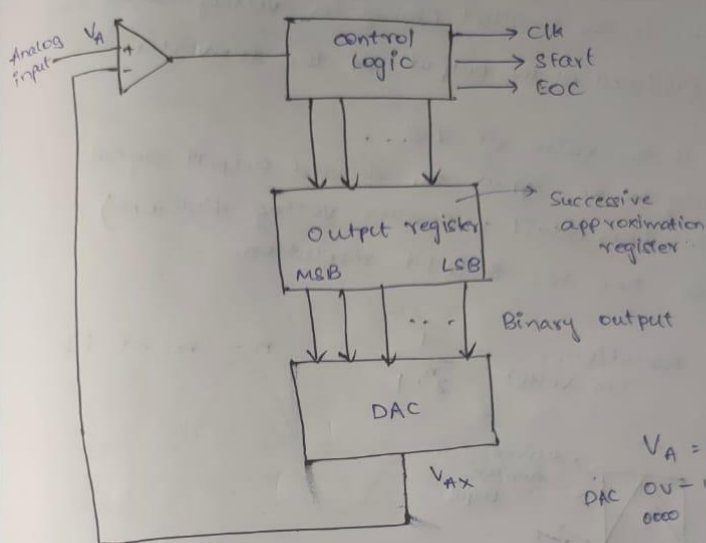 Analog
input
VA
+
-
control
Logic
Clk
Start
EOC
Output register
MSB
LSB
Successive
approximation
register
Binary output
DAC
VAX
VA =
DAC 0V =
0000